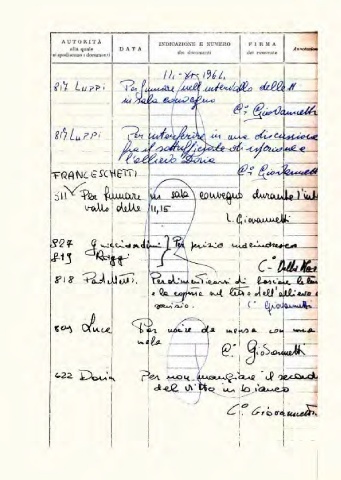 AUTORITÀ
alla quale
si spediscono i documenti
DATA
INDICAZIONE E NUMERO
dei documenti
FIRMA
del ricevente
11-XI-1964
817 LUPPI
Per fumare nell'intervallo delle 11
in sala convegno
C° Giovannetti
817 LUPPI
Per interferire in una discussione
fra il sottufficiale di ispezione e
l'allievo Doria
C° Giovannetti
FRANCESCHETTI
811 Per fumare in sala convegno durante l'inter
vallo delle 11,15
L. Giovannetti
827 Guicciardini
819 Roggi
Per
C° Dalle
818 Padelletti.
di
e la coperta sul letto dell'allievo
servizio. C° Giovannetti
809 Luce
Per uscire da mensa con una
mela
C° Giovannetti
822 Doria
Per non mangiare il secondo
del vitto in bianco
C° Giovannetti